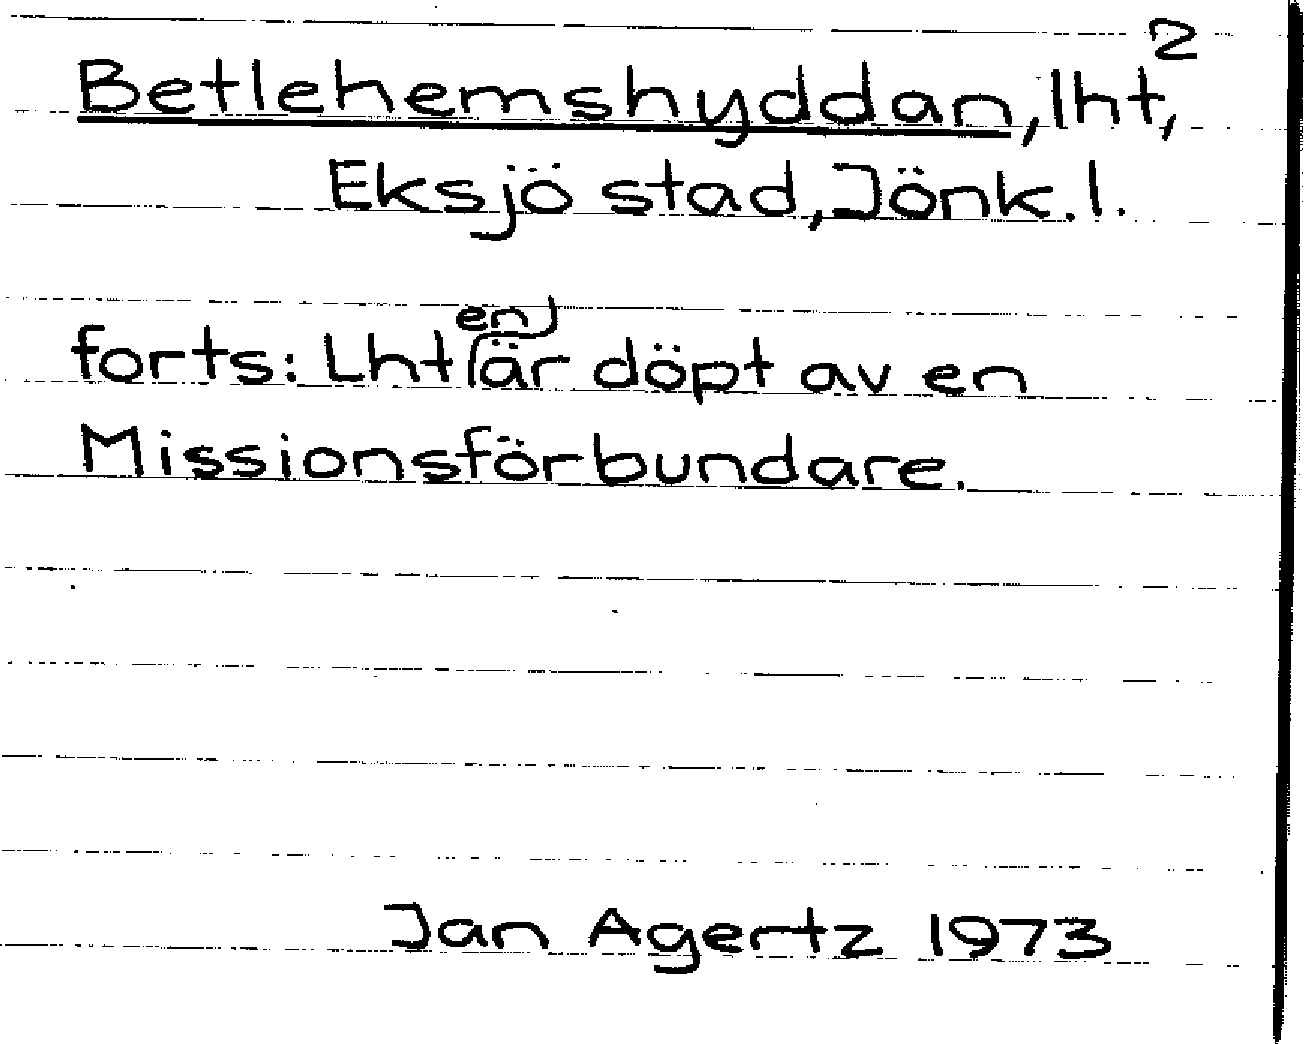 2
Betlehemshyddan, lht,
Eksjö stad, Jönk. l.
forts: Lhten är döpt av en
Missionsförbundare.
Jan Agertz 1973